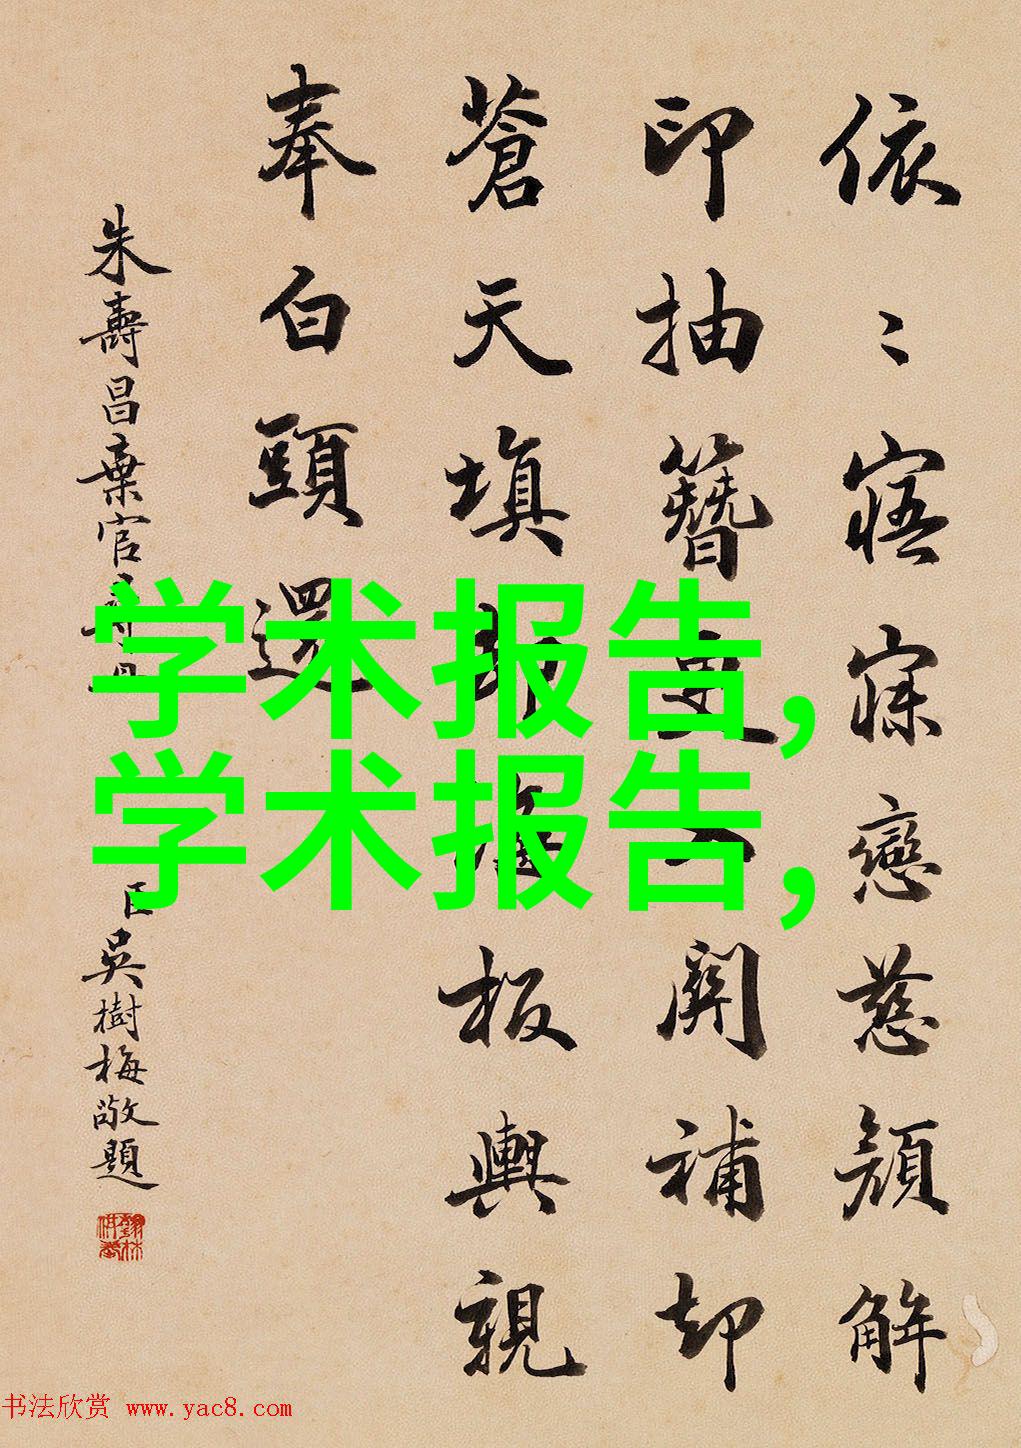 依〻寤寐戀慈顏解
印抽簪更入關補却
蒼天填
板輿親
奉白頭還
朱壽昌棄官尋母
臣吳樹梅敬題
学术报告,
学术报告,
书法欣赏 www.yac8.com